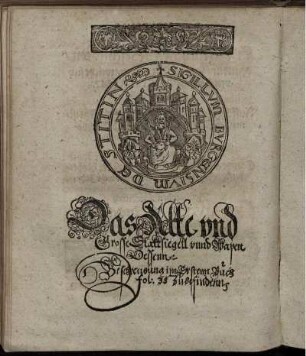 SIGILLVM BVRGENSIVM DE STITIN
Das Alte vnd
Grosse Stattsiegell vnnd Wapen
Dessenn
Beschreybung im Ersten Buch
fol. 38 zubefindenn